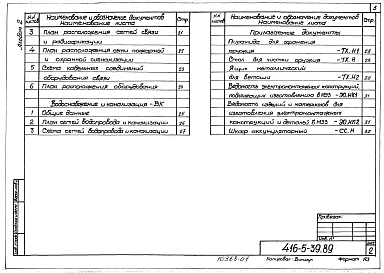 3
Альбом 2
№ листа
Наименование и обозначение документов
Наименование листа
Стр.
3 План расположения сетей связи и радиофикации 21
4 План расположения сети пожарной и охранной сигнализации
5 Схема кабельных соединений оборудования связи
6 План расположения оборудования
Водоснабжение и канализация - ВК
1 Общие данные 25
2 План сетей водопровода и канализации 26
3 Схема сетей водопровода и канализации 27
№ листа
Наименование и обозначение документов
Наименование листа
Стр.
Прилагаемые документы
Пирамида для хранения
оружия -ТХ.Н1
Стол для чистки оружия -ТХ.Н
Ящик металлический
для ветоши -ТХ.Н2
Ведомость электромонтажных конструкций,
подлежащих изготовлению в МЭЗ -ЭО.НК1
Ведомость изделий и материалов для
изготовления электромонтажных
конструкций и деталей в МЭЗ -ЭО.НК2
Шкаф аккумуляторный -СС.Н
Привязан
Инв. №
416-5-39.89
Лист
2
10363-01
Копировал:
Формат А3